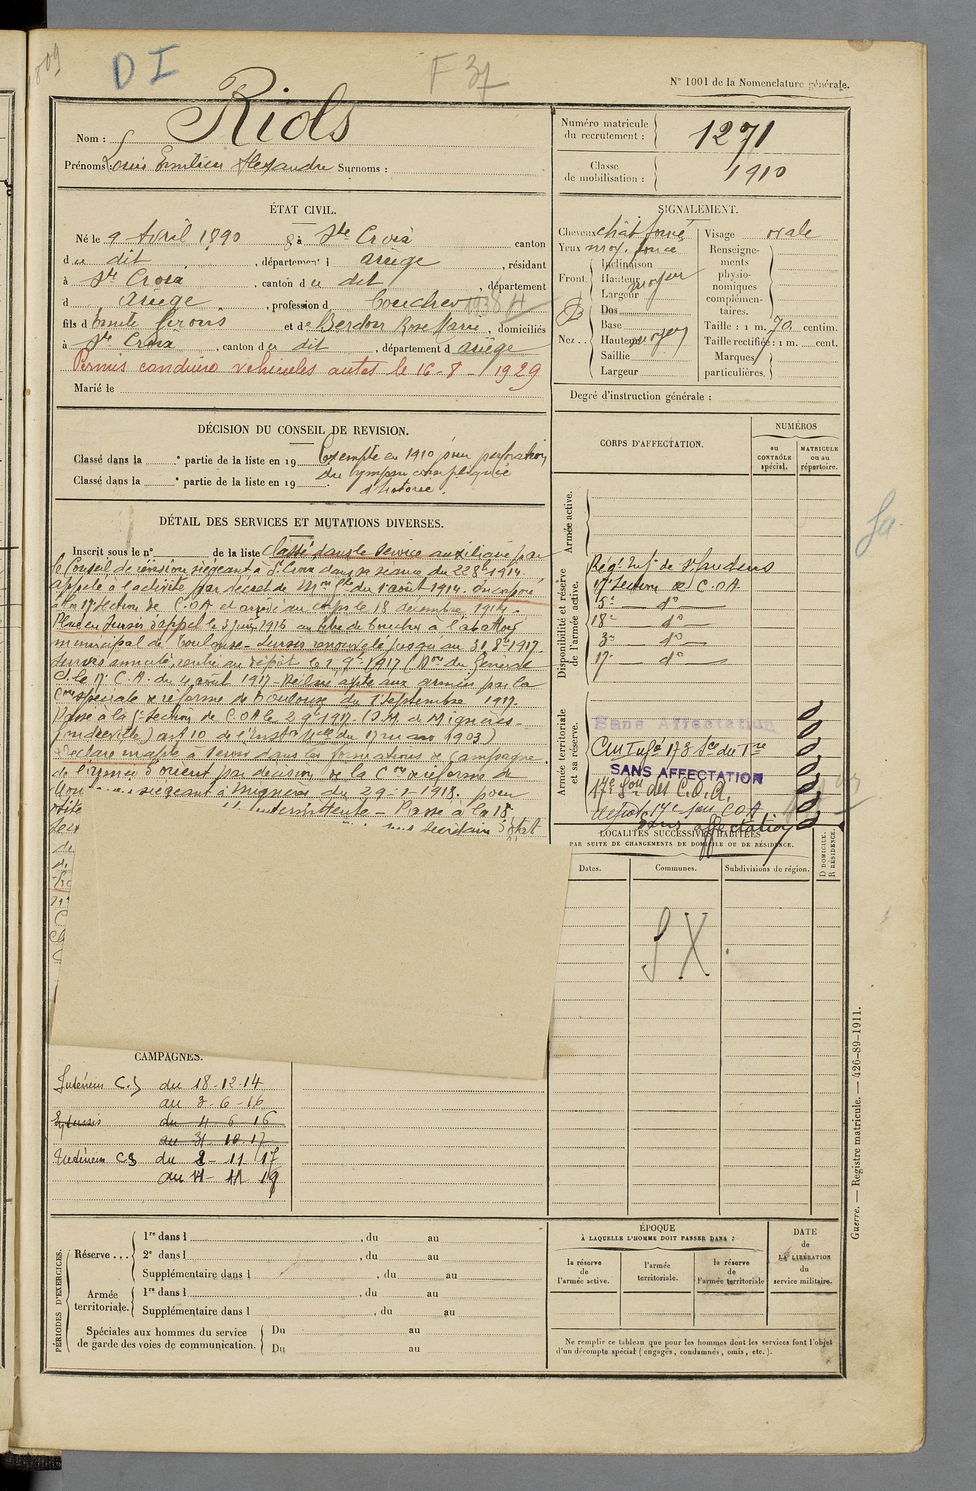 D I
F 37
N° 1001 de la Nomenclature générale.
Nom : Riols
Prénoms : Louis Emilien Alexandre Surnoms :
Numéro matricule du recrutement : 1271
Classe de mobilisation : 1910
ÉTAT CIVIL.
Né le 9 Avril 1890 à Ste Croix canton
du dit, département d ariège, résidant
à Ste Croix, canton du dit, département
d ariège, profession d boucher
fils d Emile et de Rose Marie, domiciliés
à Ste Croix, canton du dit, département d ariège
Permis conduire vehicules autos le 16-8-1929
Marié le
SIGNALEMENT.
Cheveux chât foncé
Yeux foncé
Front
Inclinaison
Hauteur moyen
Largeur
Nez
Dos
Base
Hauteur moyen
Saillie
Largeur
Visage ovale
Renseignements physionomiques complémentaires.
Taille : 1 m. 70 centim.
Taille rectifiée : 1 m. cent.
Marques particulières.
Degré d'instruction générale :
DÉCISION DU CONSEIL DE REVISION.
Classé dans la e partie de la liste en 19 Exempté en 1910 pour perforation
Classé dans la e partie de la liste en 19 du tympan compliquée
d'otorée.
DÉTAIL DES SERVICES ET MUTATIONS DIVERSES.
Inscrit sous le n° de la liste Classé dans le Service auxiliaire par
le Conseil de révision siégeant à Ste Croix dans sa séance du 22 8bre 1914.
appelé à l'activité par décret de du 1 août 1914. Incorporé
à la 17e Section de C.O.A et arrivé au corps le 18 décembre 1914.
Placé en sursis d'appel le 3 juin 1916 au titre de boucher à l'abattoir
municipal de Toulouse - Sursis renouvelé jusqu'au 31 8bre 1917.
Sursis annulé, rentre au dépôt le 2 9bre 1917 (Don du Général
Ct la 17e C.A. du 4 août 1917 - Déclaré apte aux armées par la
Con spéciale de réforme de Toulouse du 1 Septembre 1917.
Passé à la Section de C.O.A le 2 9bre 1917.
art 10 de l'Instron du 17 mars 1903)
Déclaré inapte à servir dans les formations de Campagne
de l'armée d'orient par décision de la Con de réforme de
siégeant à du 29-1-1918. pour
intermittente - Passé à la 15
secrétaire d'Etat
CORPS D'AFFECTATION.
NUMÉROS
au CONTRÔLE spécial.
MATRICULE ou au répertoire.
Armée active.
Disponibilité et réserve de l'armée active.
Rég. Inf. de St Gaudens
17e Section de C.O.A
5e do
18e do
3e do
17 do
Armée territoriale et sa réserve.
Sans Affectation
SANS AFFECTATION
17e Son des C.O.A.
17e Son C.O.A
sans affectation
LOCALITÉS SUCCESSIVES HABITÉES
PAR SUITE DE CHANGEMENTS DE DOMICILE OU DE RÉSIDENCE.
Dates.
Communes.
Subdivisions de région.
D DOMICILE.
R RÉSIDENCE.
S X
CAMPAGNES.
Intérieur C.S du 18-12-14
au 3-6-16
En sursis du 4-6-16
au 31-10-17
Intérieur CS du 2-11-17
Guerre. — Registre matricule. — 426-89-1911.
PÉRIODES D'EXERCICES.
Réserve...
1re dans l , du au
2e dans l , du au
Supplémentaire dans l , du au
Armée territoriale.
1re dans l , du au
Supplémentaire dans l , du au
Spéciales aux hommes du service de garde des voies de communication.
Du au
Du au
ÉPOQUE
À LAQUELLE L'HOMME DOIT PASSER DANS :
la réserve de l'armée active.
l'armée territoriale.
la réserve de l'armée territoriale
DATE de LA LIBÉRATION du service militaire.
Ne remplir ce tableau que pour les hommes dont les services font l'objet
d'un décompte spécial (engagés, condamnés, omis, etc.).